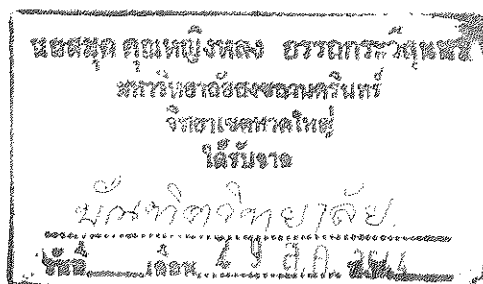 หอสมุด คุณหญิงหลง อรรถกระวีสุนทร
มหาวิทยาลัยสงขลานครินทร์
วิทยาเขตหาดใหญ่
ได้รับจาก
บัณฑิตวิทยาลัย
วันที่ เดือน 29 ส.ค. 2544